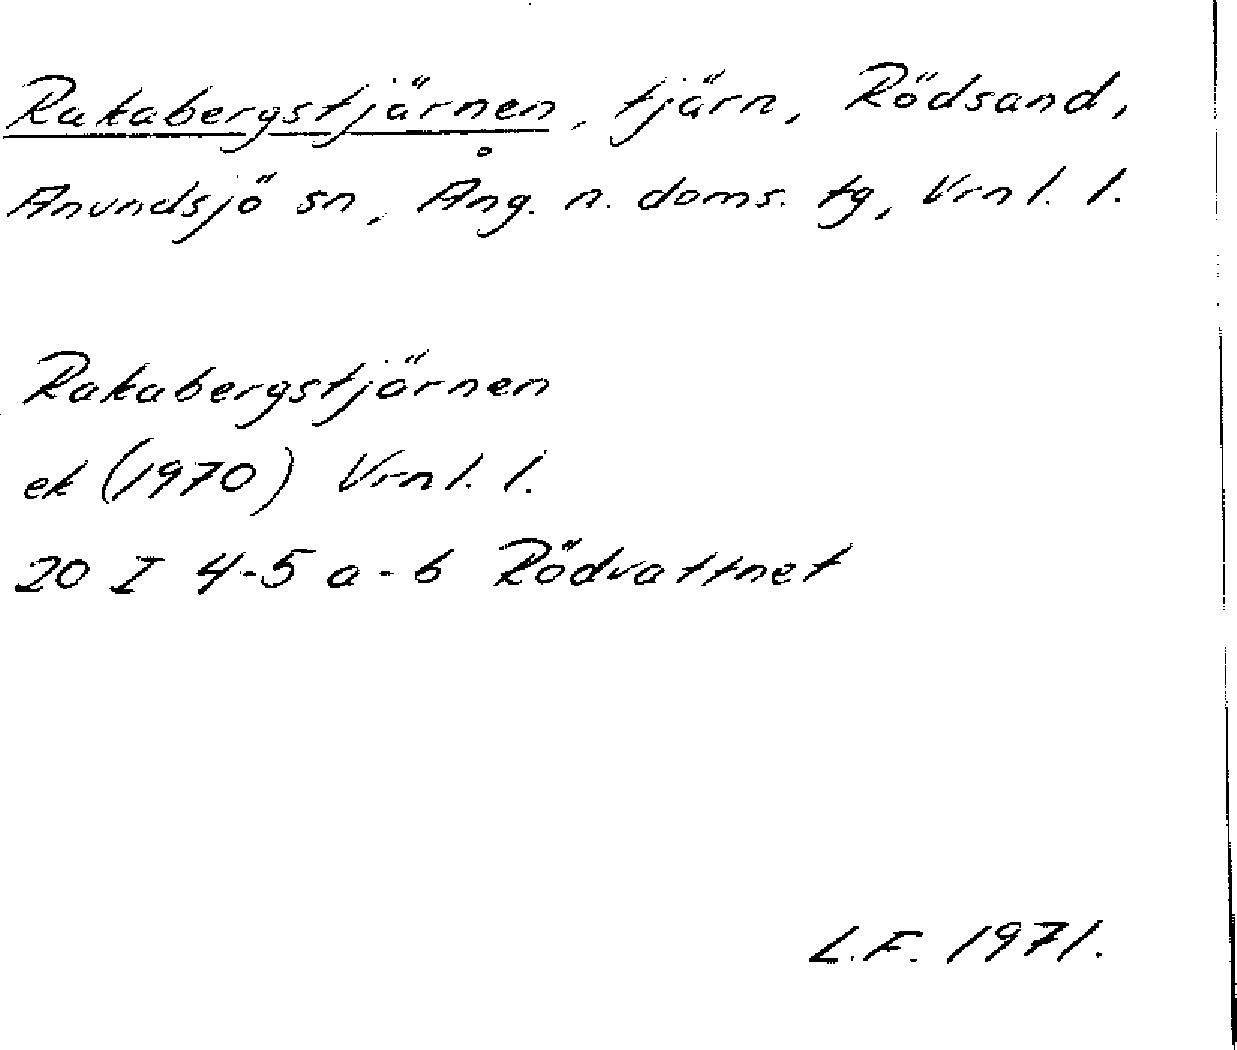 Rakabergstjärnen, tjärn, Rödsand,
Anundsjö sn, Ång. n. doms. tg, Vrnl. l.
Rakabergstjärnen
ek (1970) Vrnl. l.
20 I 4-5 a-b Rödvattnet
L.F. 1971.